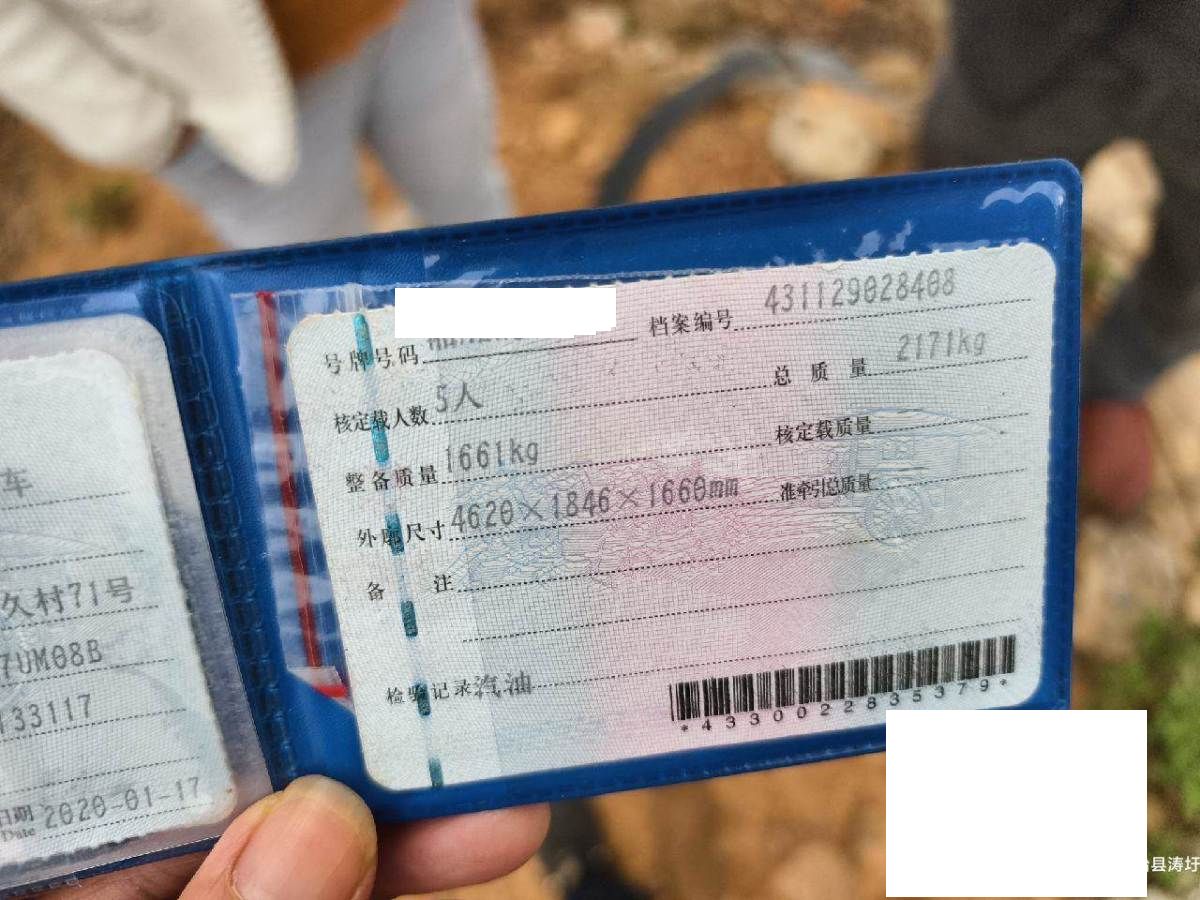 车
久村71号
7UM08B
133117
日期 2020-01-17
Date
号牌号码
档案编号 431129028408
核定载人数 5人
总质量 2171kg
整备质量 1661kg
核定载质量
外廓尺寸 4620×1846×1660mm
准牵引总质量
备注
检验记录 汽油
*4330022835379*
县涛圩